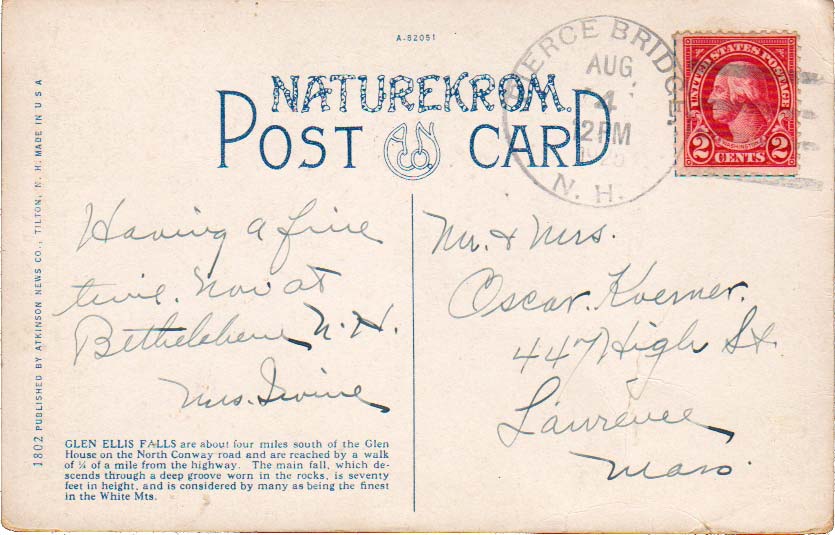 A-82051
NATUREKROM
POST CARD
ANCO.
PIERCE BRIDGE.
AUG
4
2 PM
N. H.
UNITED STATES POSTAGE
WASHINGTON
2 CENTS 2
Having a fine
time. Now at
Bethelehem, N. H.
Mrs. Irvine
Mr. & Mrs.
Oscar. Koerner.
447 High St.
Lawrence
Mass.
GLEN ELLIS FALLS are about four miles south of the Glen
House on the North Conway road and are reached by a walk
of ¼ of a mile from the highway. The main fall, which de-
scends through a deep groove worn in the rocks, is seventy
feet in height, and is considered by many as being the finest
in the White Mts.
1802 PUBLISHED BY ATKINSON NEWS CO., TILTON, N. H. MADE IN U S A